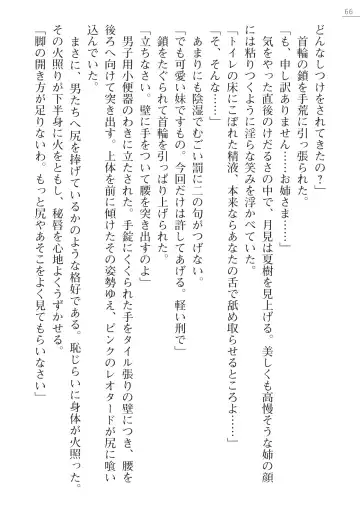 66
どんなしつけをされてきたの？」
首輪の鎖を手荒に引っ張られた。
「も、申し訳ありません……お姉さま……」
気をやった直後のけだるさの中で、月見は夏樹を見上げる。美しくも高慢そうな姉の顔
には粘りつくように淫らな笑みを浮かべていた。
「トイレの床にこぼれた精液、本来ならあなたの舌で舐め取らせるところよ……」
「そ、そんな……」
あまりにも陰湿でむごい罰に二の句がつげない。
「でも可愛い妹ですもの。今回だけは許してあげる。軽い刑で」
鎖をたぐられて首輪を引っぱり上げられた。
「立ちなさい。壁に手をついて腰を突き出すのよ」
男子用小便器のわきに立たされた。手錠にくくられた手をタイル張りの壁につき、腰を
後ろへ向けて突き出す。上体を前に傾けたその姿勢ゆえ、ピンクのレオタードが尻に喰い
込んでいた。
まさに、男たちへ尻を捧げているかのような格好である。恥じらいに身体が火照った。
その火照りが下半身に火をともし、秘唇を心地よくうずかせる。
「脚の開き方が足りないわ。もっと尻やあそこをよく見てもらいなさい」